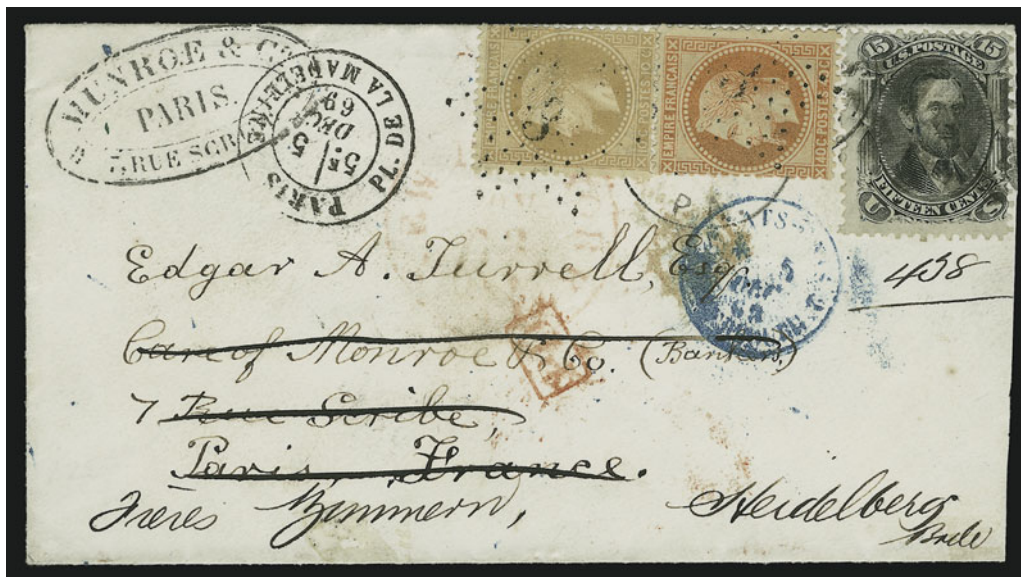 MUNROE & Co
PARIS.
7, RUE SCR
PARIS
PL. DE LA MADELEINE
5
DEC
69
EMPIRE FRANÇAIS
EMPIRE FRANÇAIS
40c POSTES 40c
15 U.S. POSTAGE 15
FIFTEEN CENTS
U S
P
Edgar A. Turrell, Esq.
458
Care of Monroe & Co. (Bankers)
7 Rue Scribe,
Paris, France.
Frères Zimmern,
Heidelberg
Bade